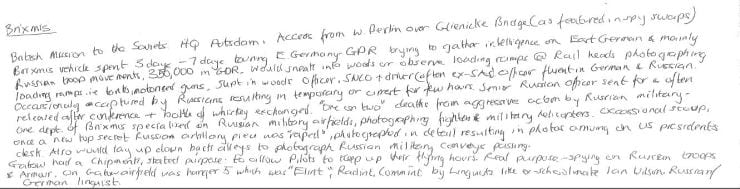 Brixmis
British Mission to the Soviets HQ Potsdam. Access from W. Berlin over Glienicke Bridge (as featured in spy swaps)
Brixmis vehicle spent 3 days - 7 days touring E Germany GDR trying to gather intelligence on East German & mainly
Russian troop movements, 350,000 in GDR. Would sneak into woods or observe loading ramps @ Rail heads photographing
loading ramps i.e. tanks, motorised guns. Slept in woods Officer, SNCO + driver (often ex-SAS) officer fluent in German & Russian.
Occasionally captured by Russians resulting in temporary arrest for few hours. Senior Russian officer sent for & often
released after conference + bottle of whiskey exchanged. "one or two" deaths from aggressive action by Russian military -
one dept. of Brixmis specialised on Russian military airfields, photographing fighters & military helicopters. Occasional scoup,
once a new top secret Russian artillery piece was "raped", photographed in detail resulting in photos arriving on US presidents
desk. Also would lay up down back alleys to photograph Russian military convoys passing.
Gatow had a Chipmunk, stated purpose: to allow Pilots to keep up their flying hours. Real purpose - spying on Russian troops
& Armur. On Gatow airfield was hanger 5 which was "Elint", Radint, Commint by Linguists like ex-schoolmate Ian Wilson Russian/
German linguist.